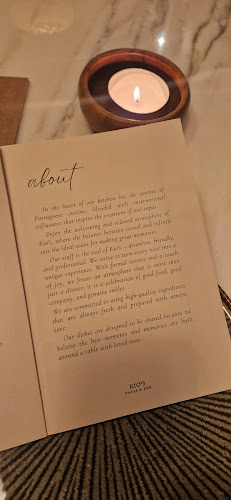 about
In the heart of our kitchen lies the essence of
Portuguese cuisine, blended with international
influences that inspire the creations of our tapas.
Enjoy the welcoming and relaxed atmosphere of
Rio's, where the balance between casual and refined
sets the ideal scene for making great memories.
Our staff is the soul of RIO's – attentive, friendly,
and professional. We strive to turn every visit into a
unique experience. With formal service and a touch
of joy, we foster an atmosphere that is more than
just a dinner; it is a celebration of good food, good
company, and genuine smiles.
We are committed to using high-quality ingredients
that are always fresh and prepared with utmost
care.
Our dishes are designed to be shared because we
believe the best moments and memories are built
around a table with loved ones.
RIO'S
TAPAS & BAR